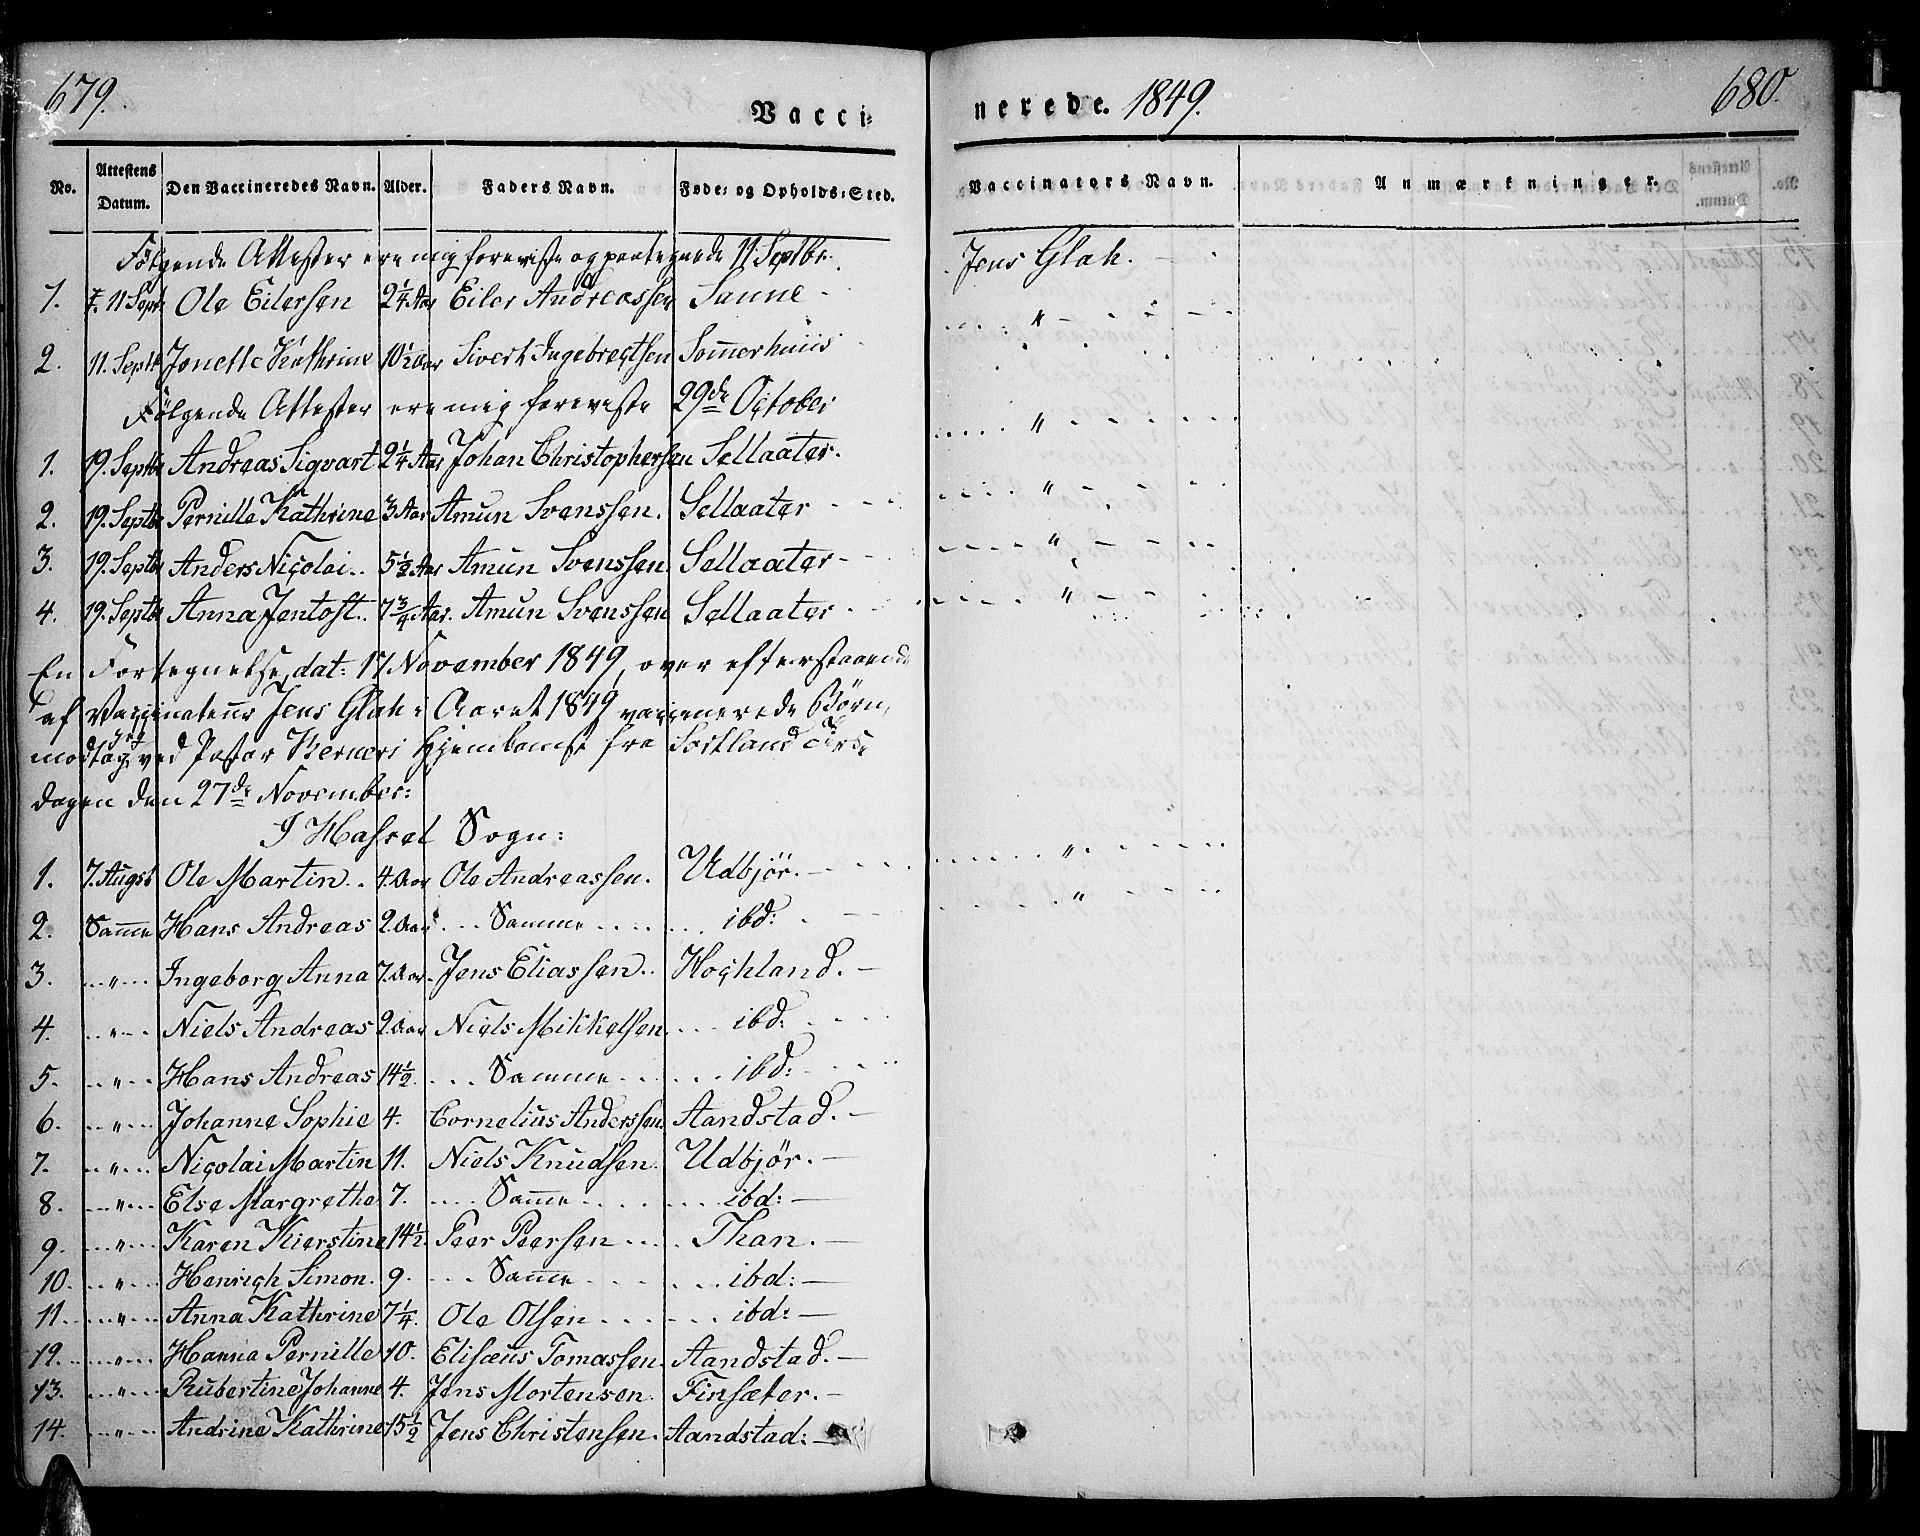 679.
Vacci-
nerede. 1849.
680.
No. Attestens Datum. Den Vaccineredes Navn. Alder. Faders Navn. Føde- og Opholds-Sted. Vaccinators Navn. Anmærkninger.
Følgende Attester ere mig foreviste og paategnede 11 Septbr. Jens Glah.
1. 11 Septb Ole Eilersen 2 1/4 Aar Eiler Andreassen Sanne - "
2. 11. Septb Jonette Kathrine 10 1/2 Aar Sivert Ingebregtsen Sommerhuus
Følgende Attester ere mig foreviste 29de October
1. 19. Septbr Andreas Sigvart 2 1/4 Aar Johan Christophersen Sellaater. "
2. 19. Septbr Pernille Kathrine 3 Aar Amun Svenssen. Sellaater "
3. 19. Septbr Anders Nicolai.. 5 1/2 Aar Amun Svenssen Sellaater - "
4. 19. Septbr Anna Jentoft.. 7 3/4 Aar. Amun Svenssen Sellaater "
En Fortegnelse, dat: 17 November 1849, over efterstaaende
af Vaccinateur Jens Glah i Aaret 1849 vaccinerede Børn,
modtog jeg ved Pastor Kerners Hjemkomst fra Sortland Tirs-
dagen den 27de November:
I Hassel Sogn:
1. 7. Augst Ole Martin.. 4. Aar Ole Andreassen. Udbjör. "
2. Samme Hans Andreas 2. Aar ... Samme .... ibd: "
3. " Ingeborg Anna 7. Aar. Jens Eliassen.. Hochland. -
4. " Niels Andreas 2. Aar Niels Mikkelsen. ... ibd:
5. " Hans Andreas 14 1/2. ... Samme ... ibd:
6. " Johanne Sophie 4. Cornelius Anderssen. Aandstad. -
7. " Nicolai Martin 11. Niels Knudsen. Udbjör. -
8. " Else Margrethe 7. ... Samme ... ibd: -
9. " Karen Kierstine 14 1/2. Peer Peersen .... Than. -
10. " Henrich Simon. 9. ... Samme ... ibd: -
11. " Anna Kathrine 7 1/4. Ole Olsen ... ibd: -
12. " Hanna Pernille 10. Elisæus Tomassen. Aandstad. -
13. " Rubertine Johanne 4. Jens Mortensen. Finsæter. -
14. " Andrine Kathrine 15 1/2 Jens Christensen. Aandstad: -